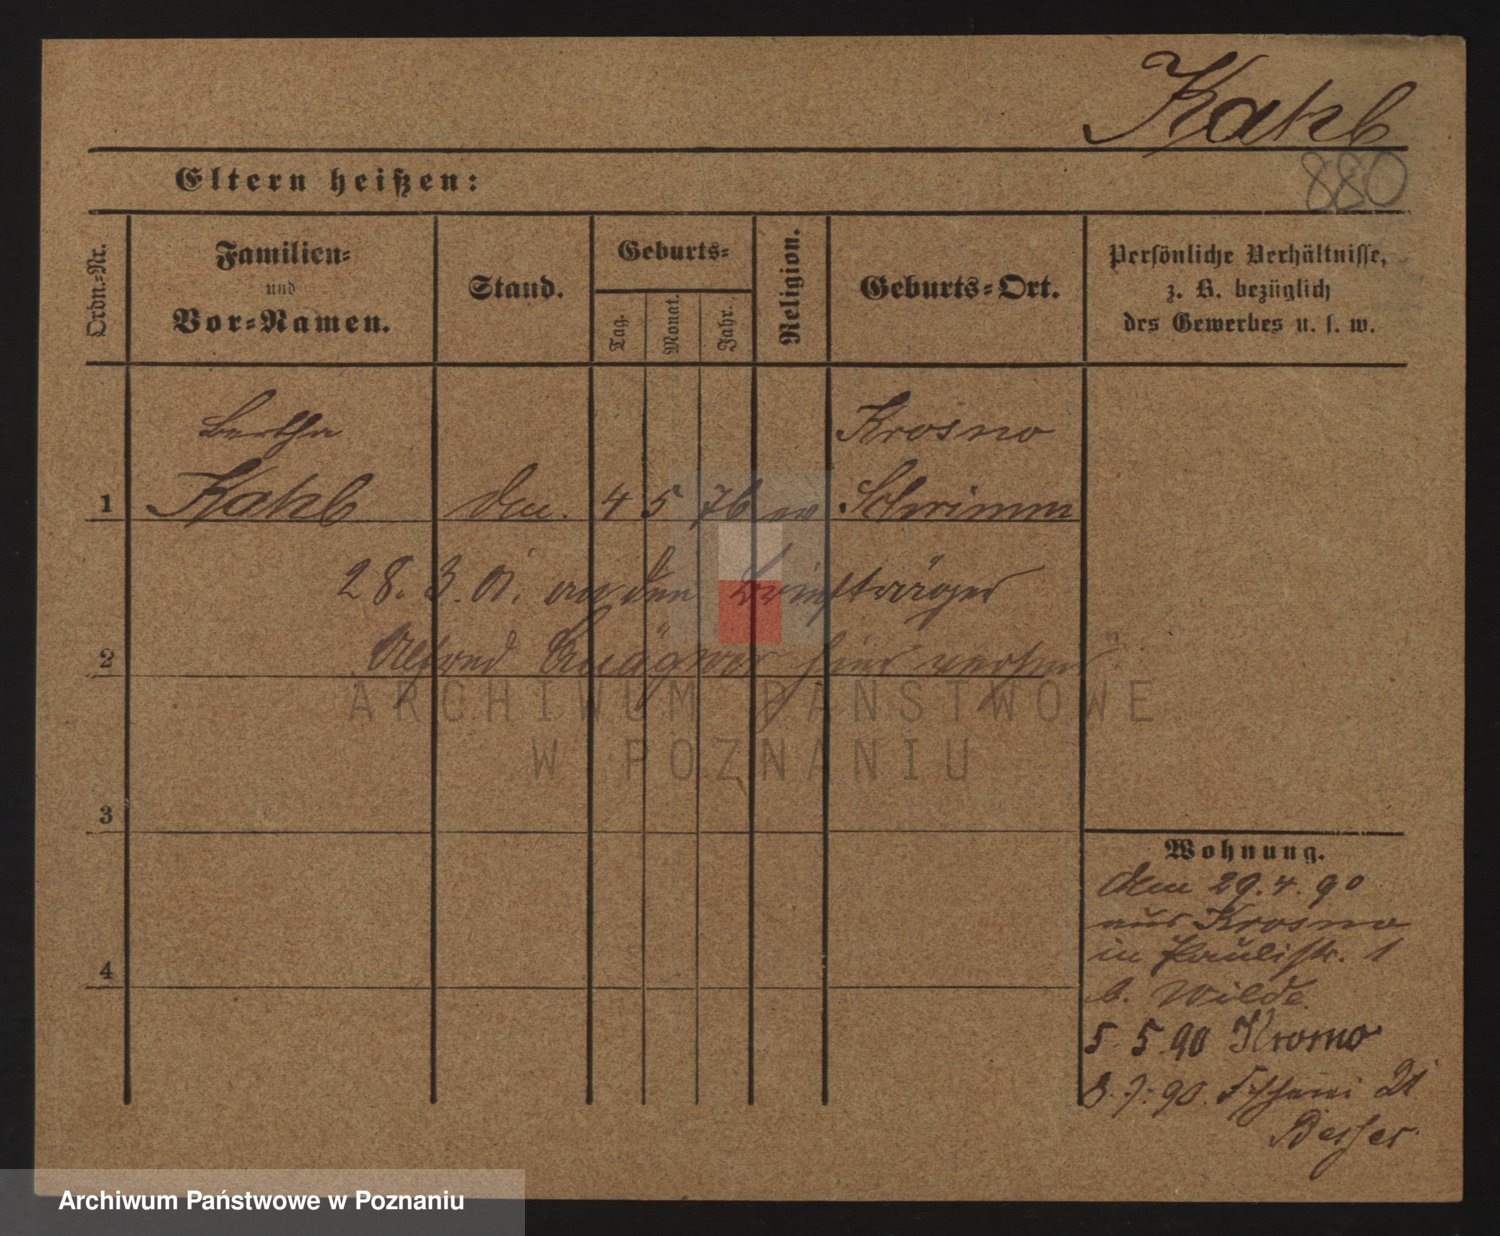 Kahl
880
Eltern heißen:
Ordn.-Nr.
Familien-
und
Vor-Namen.
Stand.
Geburts-
Tag.
Monat.
Jahr.
Religion.
Geburts-Ort.
Persönliche Verhältnisse,
z. B. bezüglich
des Gewerbes u. s. w.
Bertha
Krosno
1
4 5 76 ev Schrimm
28.3.01. an den Briefträger
2
Alfred hier verh.
ARCHIWUM PAŃSTWOWE
W POZNANIU
3
4
Wohnung.
den 29.4.90
aus Krosno
in Paulistr. 1
b. Wilde
5.5.90 Krosno
3.7.90. 21
Archiwum Państwowe w Poznaniu